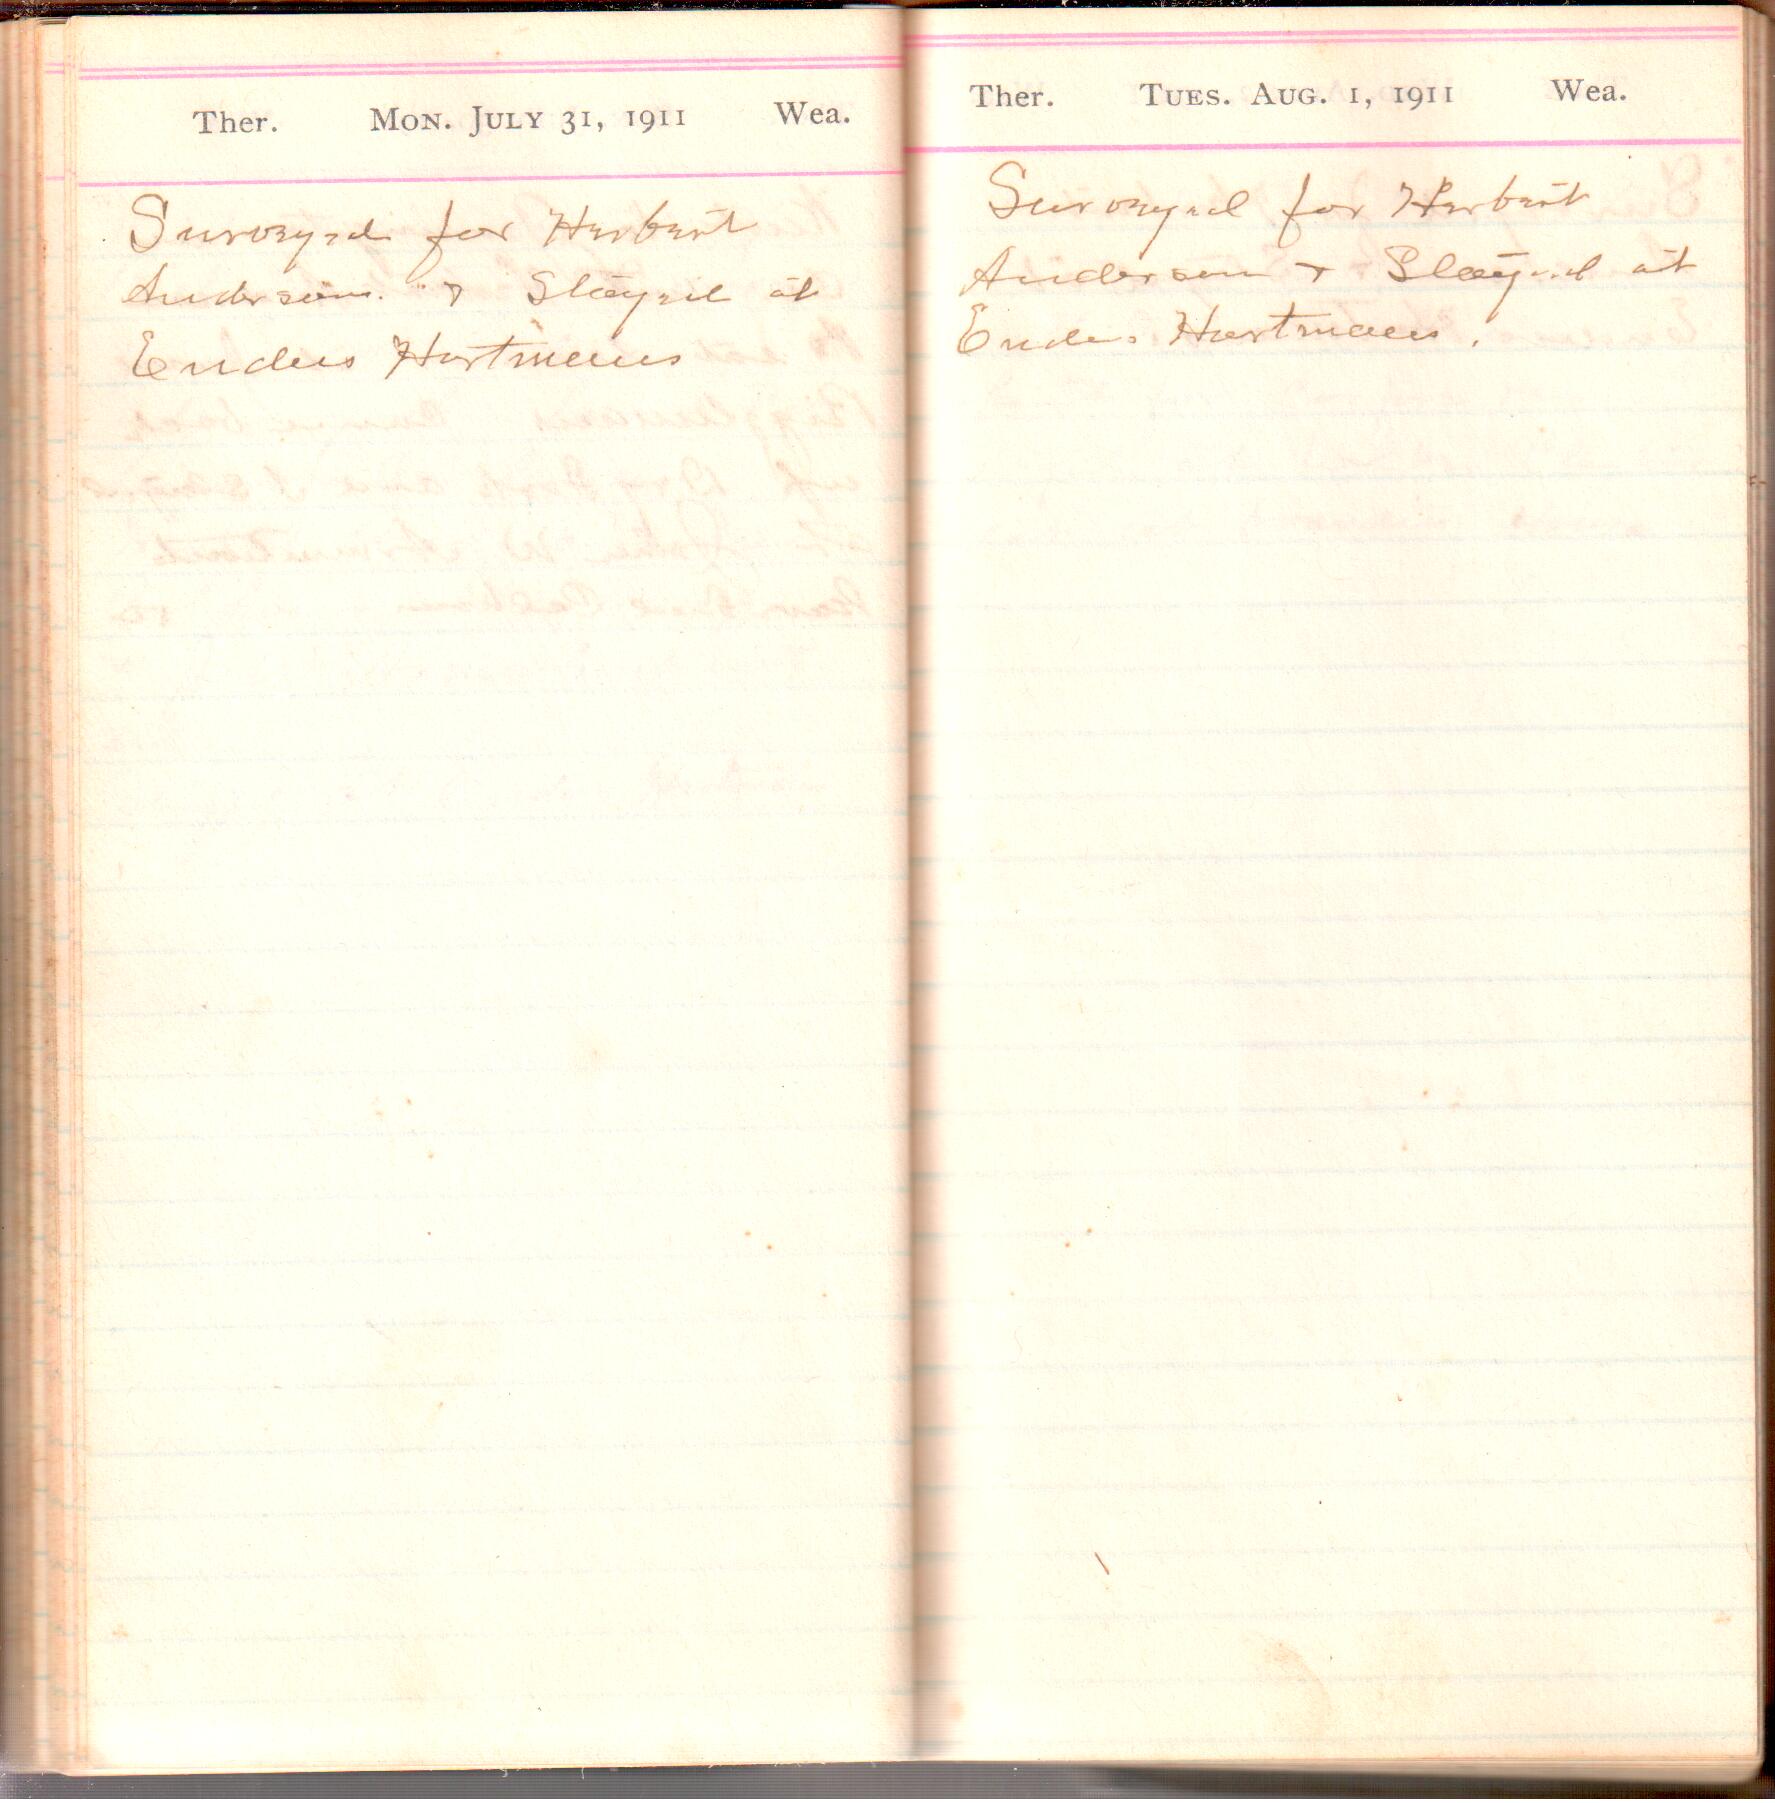 Ther. Mon. July 31, 1911 Wea.
Surveyed for Herbert
Anderson. & Stayed at
Enders Hartmans
Ther. Tues. Aug. 1, 1911 Wea.
Surveyed for Herbert
Anderson & Stayed at
Enders Hartmans.